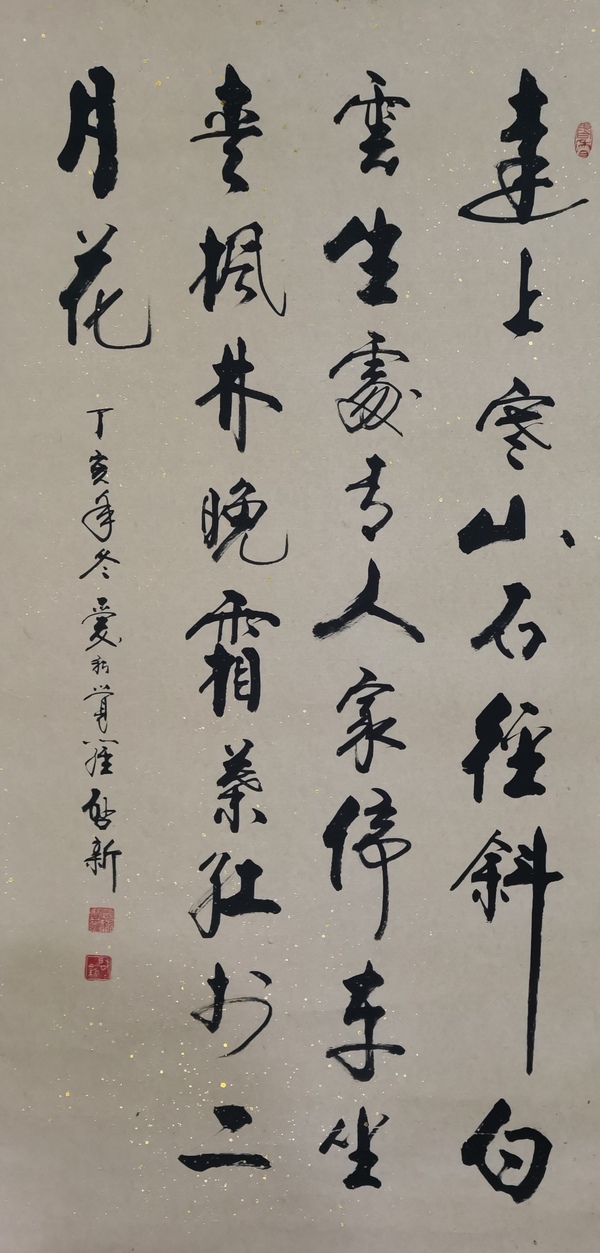 遠上寒山石徑斜白
雲生處有人家停車坐
愛楓林晚霜葉紅於二
月花
丁亥年冬愛新覺羅啟新